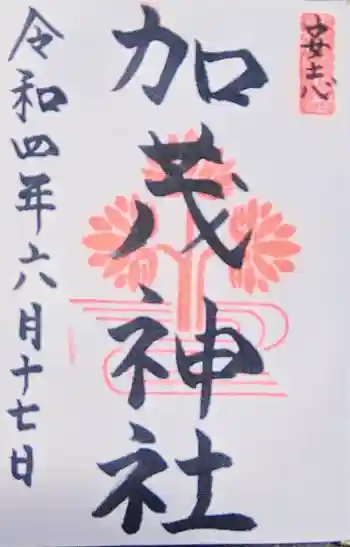 安志
加茂神社
令和四年六月十七日